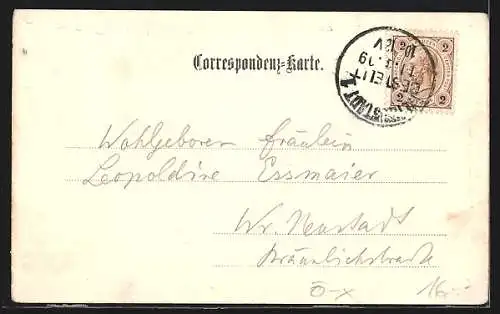 Correspondenz-Karte.
2 2
BESTELLT
Wohlgeboren Fräulein
Leopoldine Essmaier
Wr. Neustadt
Bräunlichstrasse
Ö-x 16.-